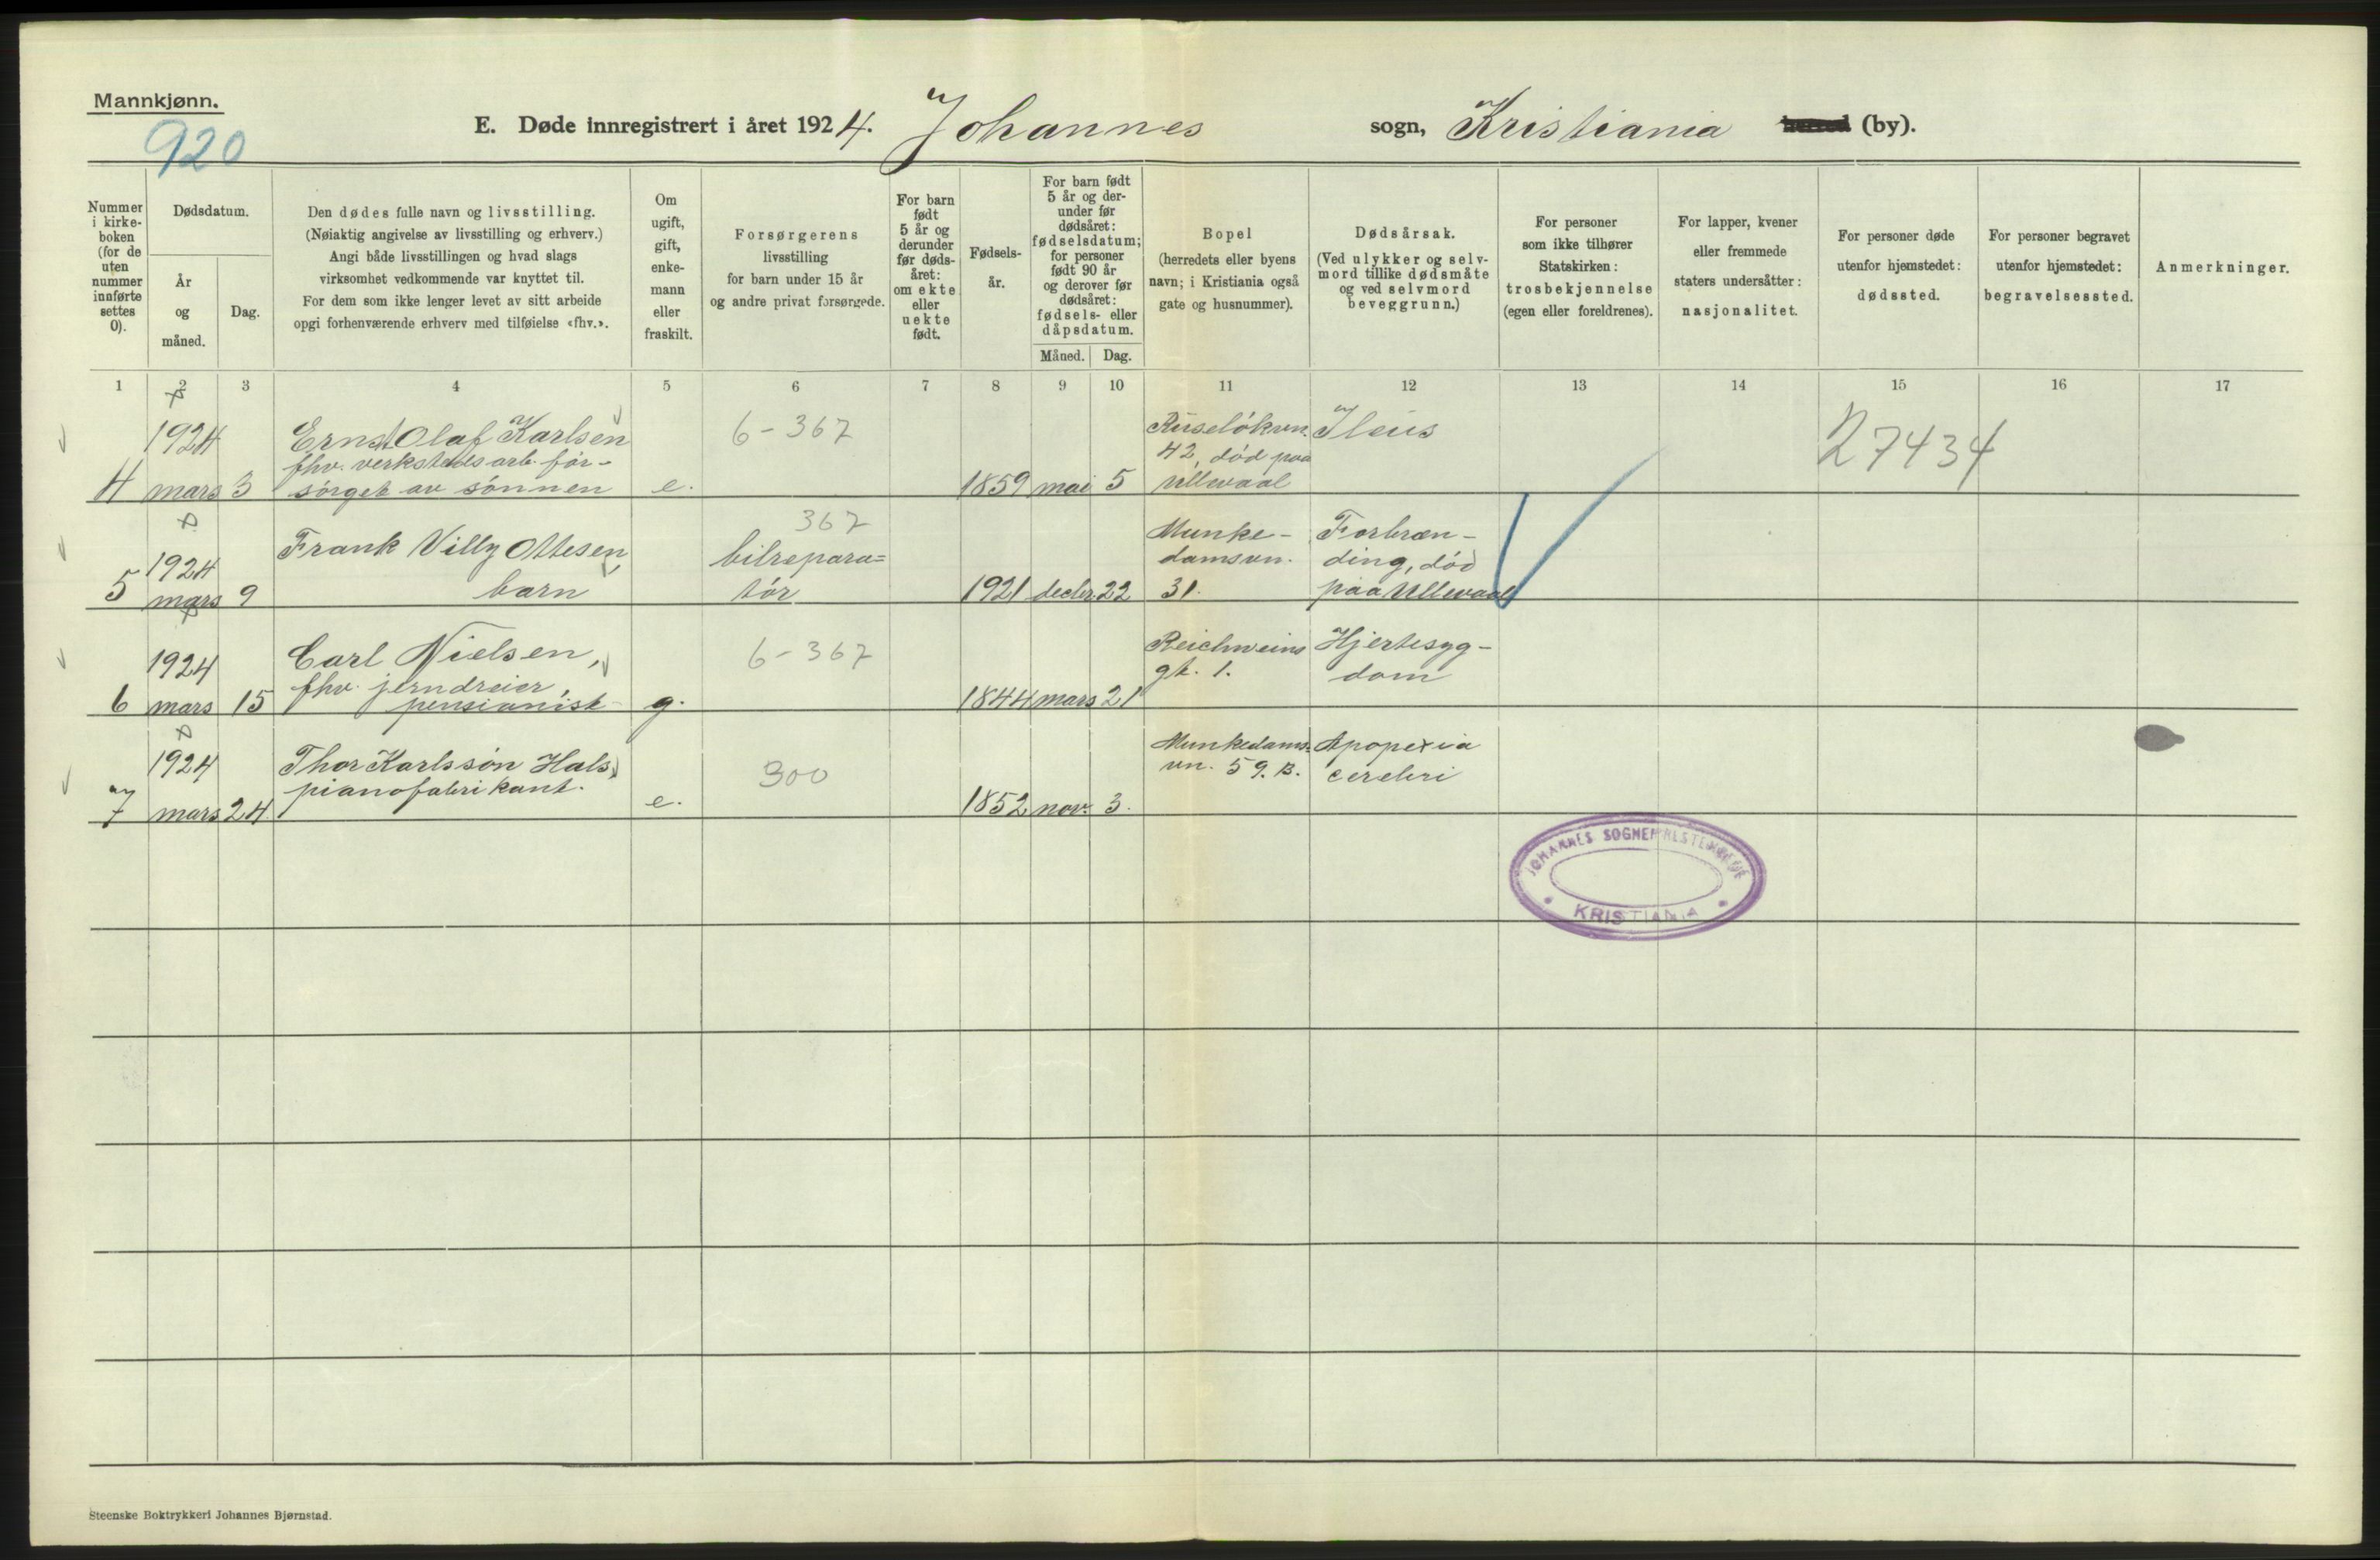 Mannkjønn.
920
E. Døde innregistrert i året 1924. Johannes sogn, Kristiania herred (by).
Nummer i kirke-boken (for de uten nummer innførte settes 0).
Dødsdatum.
År og måned.
Dag.
Den dødes fulle navn og livsstilling.
(Nøiaktig angivelse av livsstilling og erhverv.)
Angi både livsstillingen og hvad slags
virksomhet vedkommende var knyttet til.
For dem som ikke lenger levet av sitt arbeide
opgi forhenværende erhverv med tilføielse «fhv.».
Om ugift, gift, enke-mann eller fraskilt.
Forsørgerens
livsstilling
for barn under 15 år
og andre privat forsørgede.
For barn født 5 år og derunder før døds-året: om ekte eller uekte født.
Fødsels-år.
For barn født 5 år og der-under før dødsåret: fødselsdatum; for personer født 90 år og derover før dødsåret: fødsels- eller dåpsdatum.
Måned. Dag.
Bopel
(herredets eller byens
navn; i Kristiania også
gate og husnummer).
Dødsårsak.
(Ved ulykker og selv-
mord tillike dødsmåte
og ved selvmord
beveggrunn.)
For personer
som ikke tilhører
Statskirken:
trosbekjennelse
(egen eller foreldrenes).
For lapper, kvener
eller fremmede
staters undersåtter:
nasjonalitet.
For personer døde
utenfor hjemstedet:
dødssted.
For personer begravet
utenfor hjemstedet:
begravelsessted.
Anmerkninger.
1 2 3 4 5 6 7 8 9 10 11 12 13 14 15 16 17
1924
4 mars 3
Ernst Olaf Karlsen
fhv. verksteds arb. før-
sørget av sønnen
e.
6-367
1859 mai 5
Ruseløkvn.
42, død paa
Ullevaal
Ileus
27434
1924
5 mars 9
Frank Villy Ottesen,
barn
367
bilrepara=
tør
1921 decbr. 22
Munke-
damsvn.
31.
Forbræn-
ding, død
paa Ullevaal
1924
6 mars 15
Carl Nielsen,
fhv. jerndreier,
pensionist
g.
6-367
1844 mars 21
Reichweins
gt. 1.
Hjertesyg-
dom
1924
7 mars 24.
Thor Karlssøn Hals,
pianofabrikant.
e.
300
1852 nov. 3.
Munkedams-
vn. 59. B.
Apopexia
cerebri
JOHANNES SOGNEPRESTEMBEDE
KRISTIANIA
Steenske Boktrykkeri Johannes Bjørnstad.